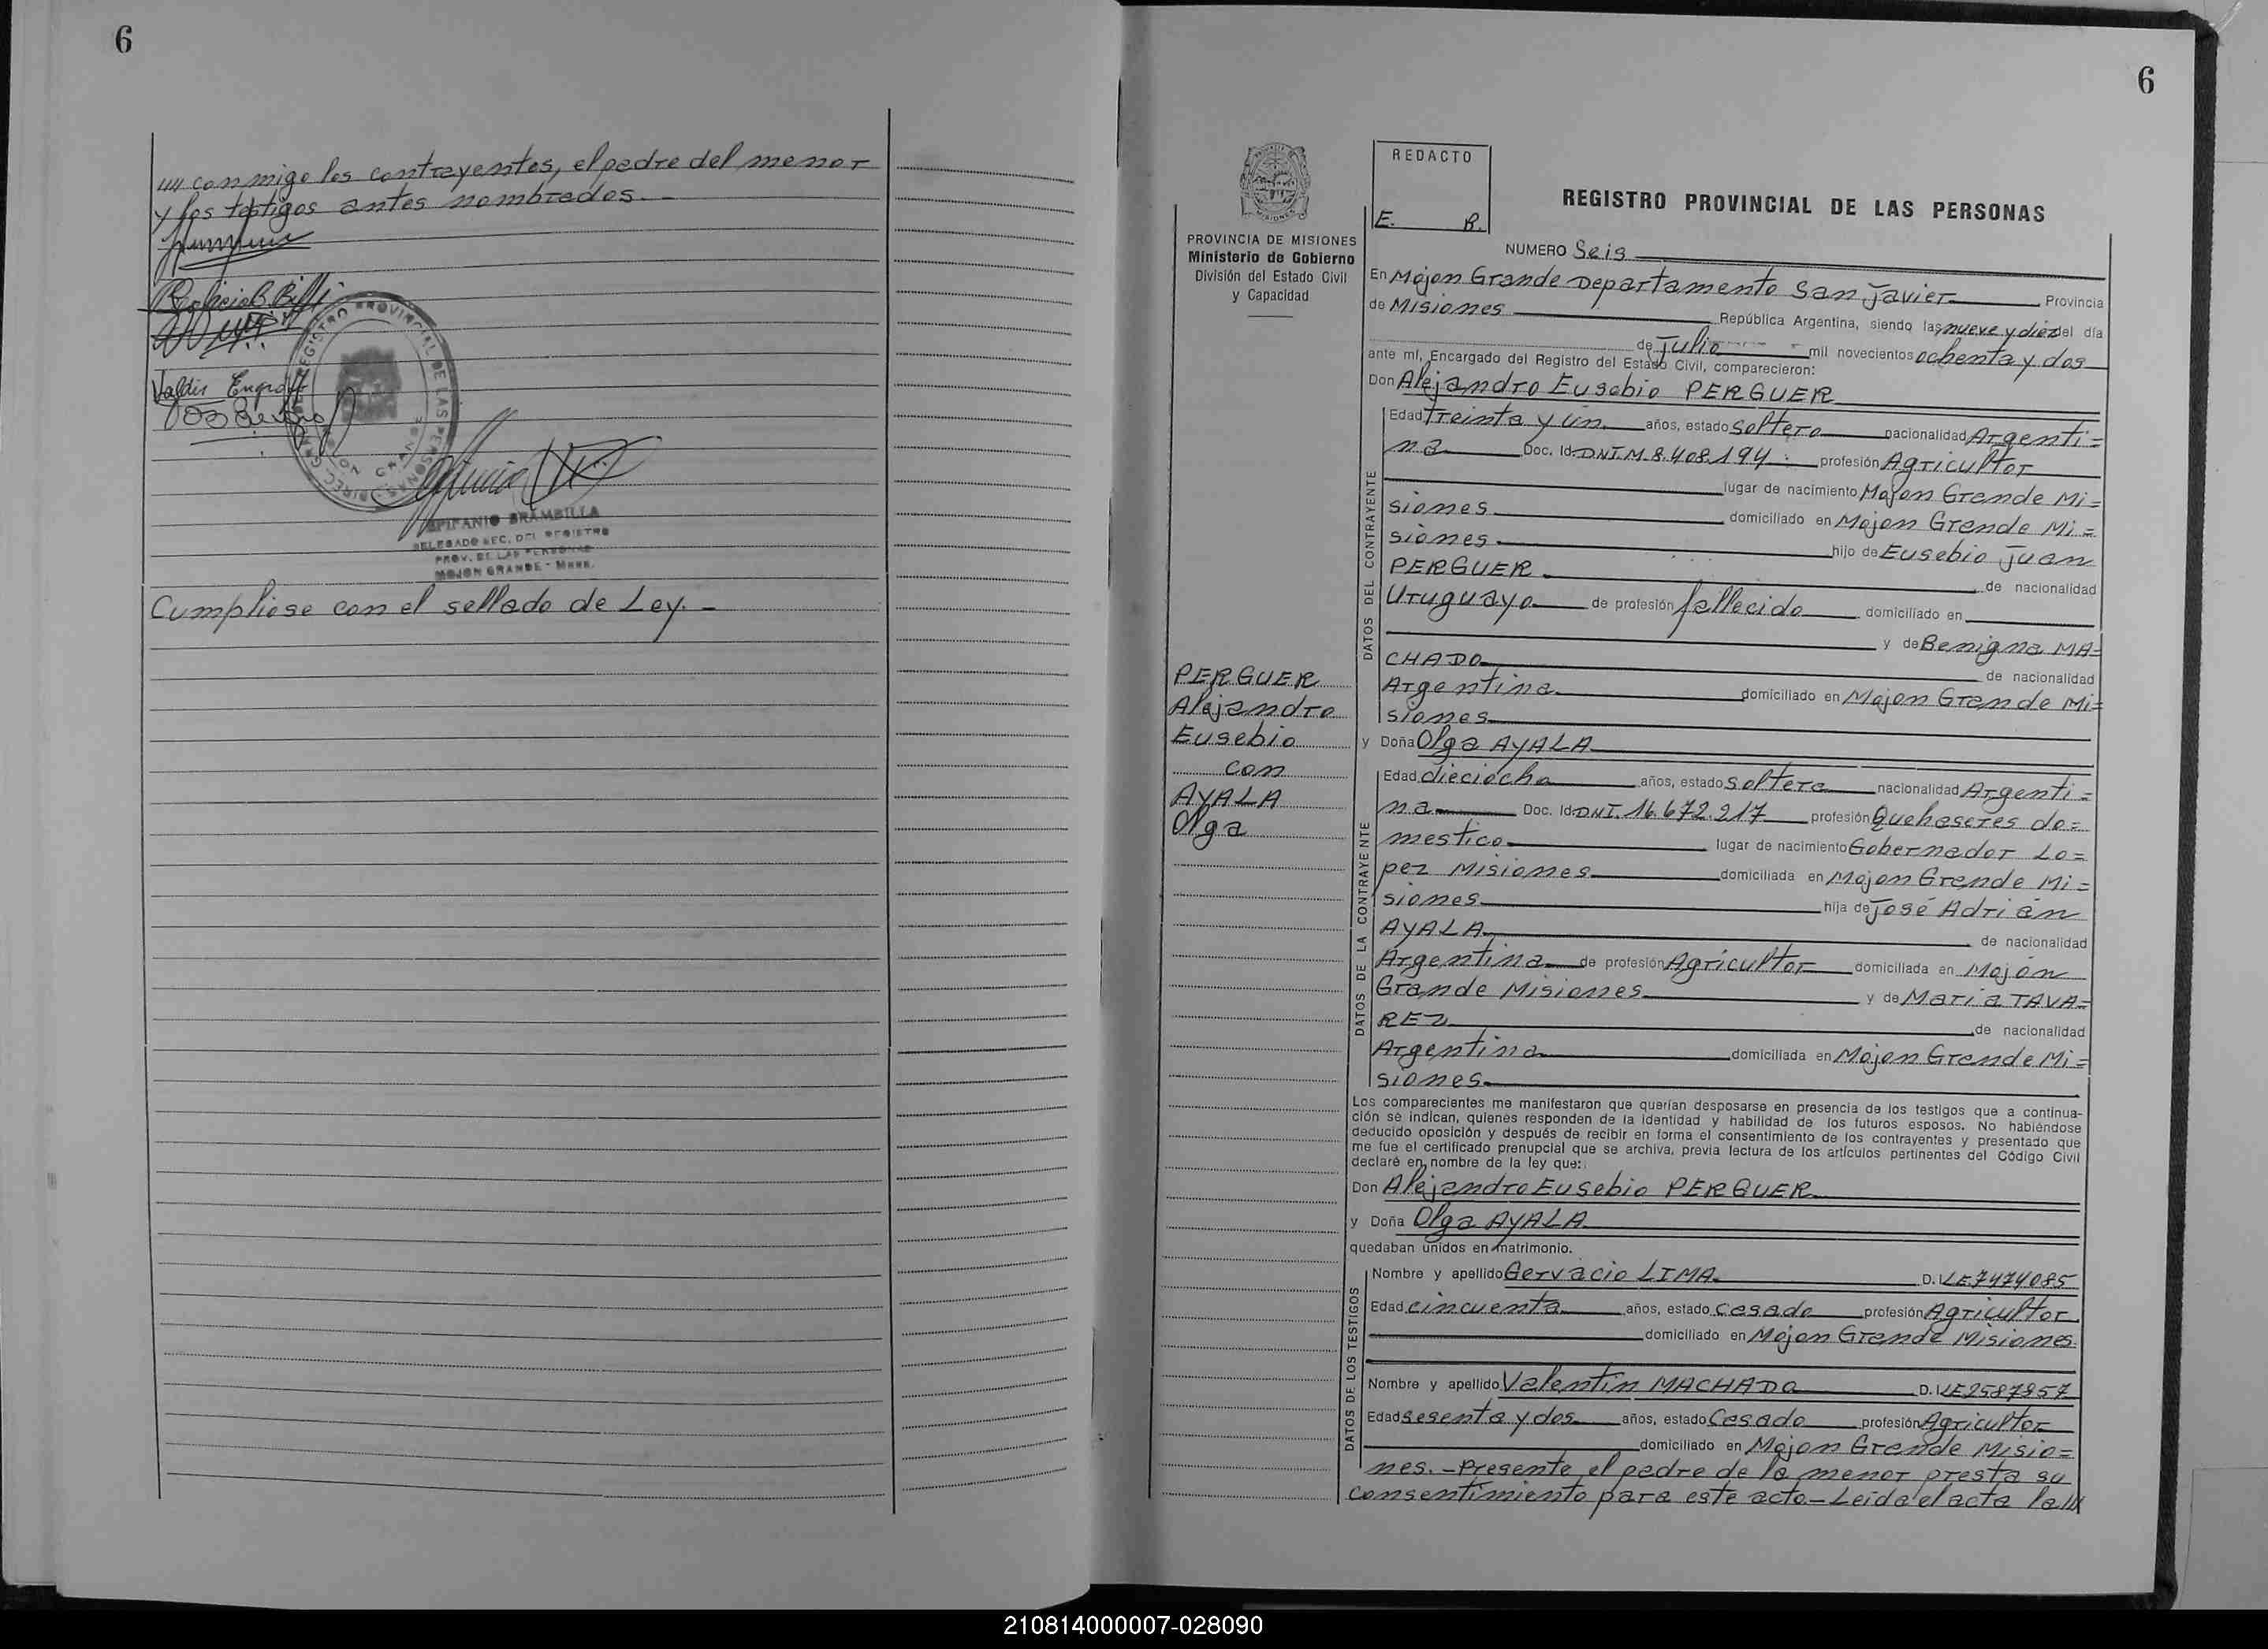 6
//// conmigo los contrayentes, el padre del menor
y los testigos antes nombrados.-
Valdir
REGISTRO PROVINCIAL DE LAS PERSONAS
MOJON GRANDE
EPIFANIO BRAMBILLA
DELEGADO SEC. DEL REGISTRO
PROV. DE LAS PERSONAS
MOJON GRANDE - Mnes.
Cumpliose con el sellado de Ley.-
6
PROVINCIA DE MISIONES
Ministerio de Gobierno
División del Estado Civil
y Capacidad
PERGUER
Alejandro
Eusebio
con
AYALA
Olga
REDACTO
E. B.
REGISTRO PROVINCIAL DE LAS PERSONAS
NUMERO Seis
En Mojon Grande Departamento San Javier Provincia
de Misiones República Argentina, siendo las nueve y diez del día
de Julio mil novecientos ochenta y dos
ante mí, Encargado del Registro del Estado Civil, comparecieron:
Don Alejandro Eusebio PERGUER
DATOS DEL CONTRAYENTE
Edad treinta y un años, estado soltero nacionalidad Argenti=
na Doc. Id. DNI.M.8.408.194 profesión Agricultor
lugar de nacimiento Mojon Grande Mi=
siones domiciliado en Mojon Grande Mi=
siones hijo de Eusebio Juan
PERGUER de nacionalidad
Uruguayo de profesión fallecido domiciliado en
y de Benigna MA=
CHADO de nacionalidad
Argentina domiciliado en Mojon Grande Mi=
siones
y Doña Olga AYALA
DATOS DE LA CONTRAYENTE
Edad dieciocho años, estado soltera nacionalidad Argenti=
na Doc. Id. DNI.16.672.217 profesión Quehaseres do=
mestico lugar de nacimiento Gobernador Lo=
pez Misiones domiciliada en Mojon Grande Mi=
siones hija de José Adrián
AYALA de nacionalidad
Argentina de profesión Agricultor domiciliada en Mojón
Grande Misiones y de Maria TAVA=
REZ de nacionalidad
Argentina domiciliada en Mojon Grande Mi=
siones
Los comparecientes me manifestaron que querían desposarse en presencia de los testigos que a continua-
ción se indican, quienes responden de la identidad y habilidad de los futuros esposos. No habiéndose
deducido oposición y después de recibir en forma el consentimiento de los contrayentes y presentado que
me fue el certificado prenupcial que se archiva, previa lectura de los artículos pertinentes del Código Civil
declaré en nombre de la ley que:
Don Alejandro Eusebio PERGUER
y Doña Olga AYALA
quedaban unidos en matrimonio.
DATOS DE LOS TESTIGOS
Nombre y apellido Gervacio LIMA D.I. LE7474085
Edad cincuenta años, estado casado profesión Agricultor
domiciliado en Mojon Grande Misiones.
Nombre y apellido Valentin MACHADO D.I. LE2587957
Edad sesenta y dos años, estado Casado profesión Agricultor
domiciliado en Mojon Grande Misio=
nes.- Presente el padre de la menor presta su
consentimiento para este acto- Leida el acta la///
210814000007-028090